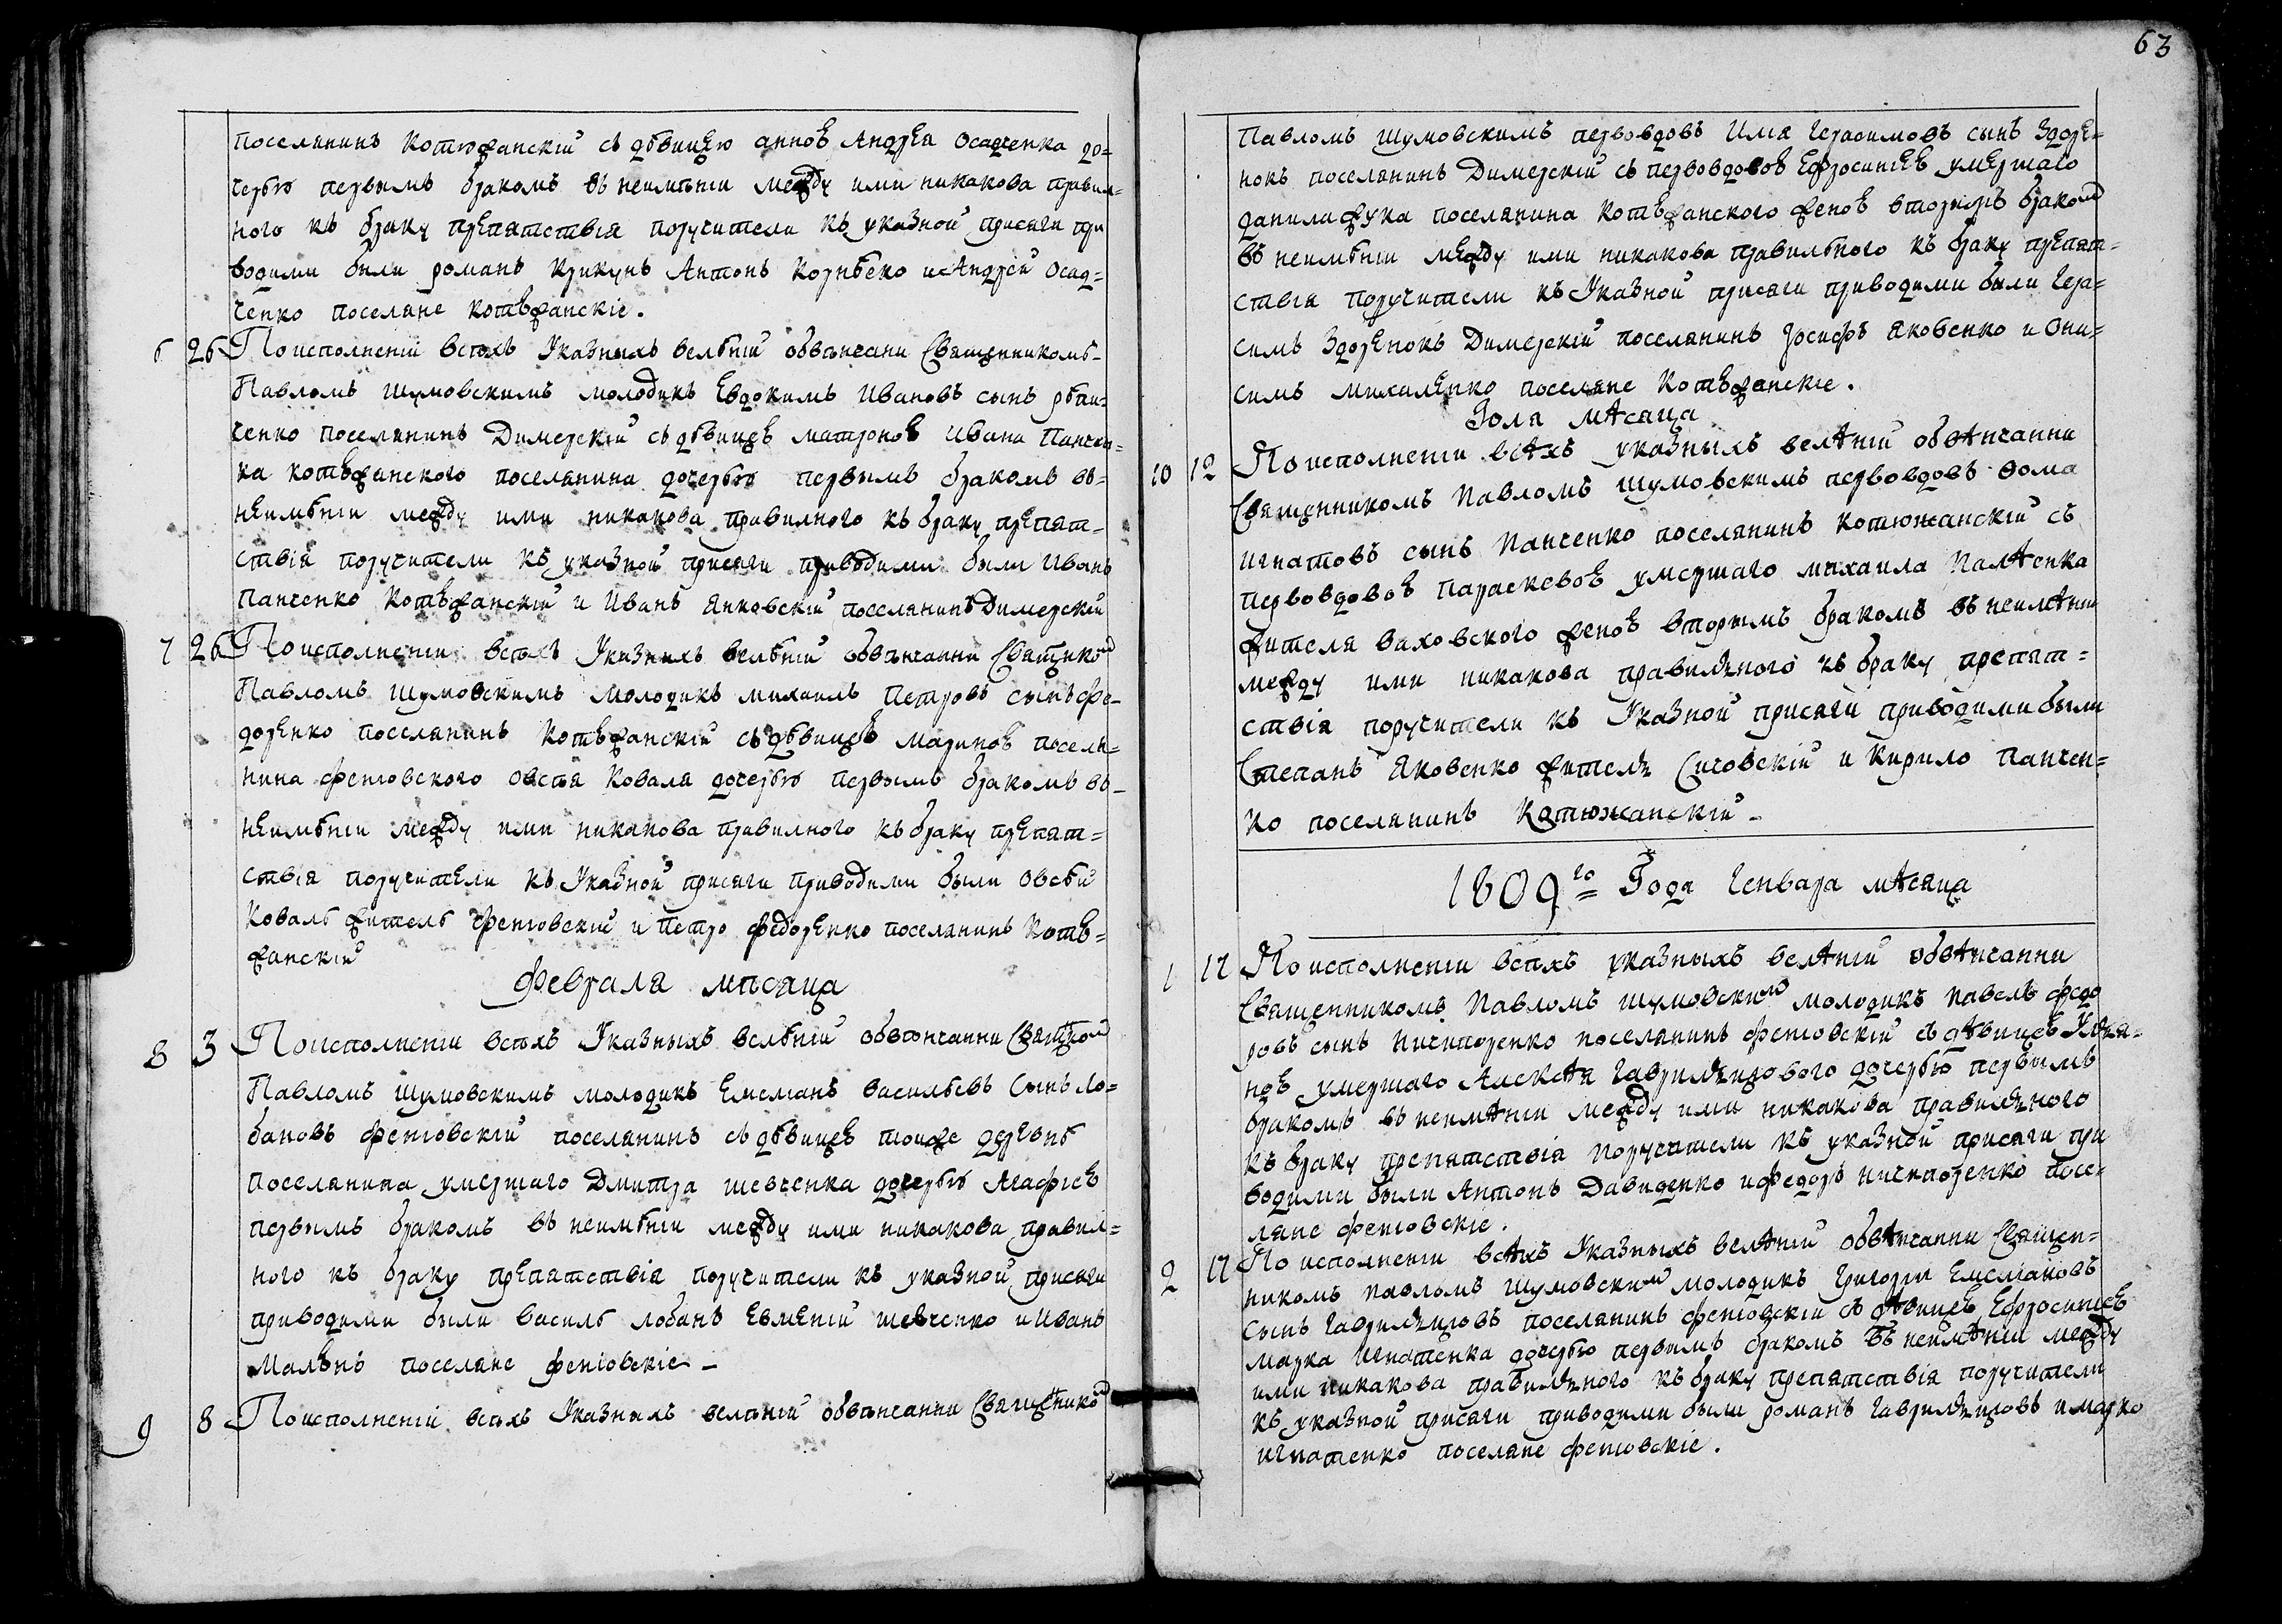 поселянинъ Котюжанскій съ дѣвицею анноѣ Андрея Осадченка до=
черью первымъ бракомъ въ неимѣніи между ими никакова правил=
ного къ браку препятствія поручители къ указной присяги при
водими били романъ Крикунъ Антонъ Корнѣеко и Андрей Осад=
ченко поселяне котюжанскіе.
6 26 По исполненій всѣхъ Указныхъ велѣній обвѣнчани Священникомъ
Павломъ Шумовскимъ молодикъ Евдокимъ Ивановъ сынъ
ченко поселянинъ Димерскій съ дѣвицеѣ матроноѣ Ивана Панчен=
ка котюжанского поселянина дочерью первымъ бракомъ въ=
неимѣніи между ими никакова правилного къ браку препят=
ствія поручители къ указной присяги приводими были Иванъ
Панченко Котюжанскій и Иванъ Янковскій поселянинъ Димерскій
7 26 По исполненіи всѣхъ Указныхъ велѣній обвѣнчанни Священко
Павломъ Шумовскимъ молодикъ михаилъ Петровъ сынъ фе=
доренко поселянинъ Котюжанскій съ дѣвицеѣ Мариноѣ поселя=
нина фенювского овсѣя Коваля дочерью первымъ бракомъ въ=
неимѣніи между ими никакова правилного къ браку препят=
ствія поручители къ Указной присяги приводими были Овсѣй
Коваль житель фенювскій и Петро федоренко поселянинъ Котю=
жанскій
Февраля мѣсяца
8 3 По исполненіи всѣхъ Указныхъ велѣній обвѣнчанни Священком
Павломъ Шумовскимъ молодикъ Емелианъ васильевъ Сынъ Ло=
бановъ фенювскій поселянинъ съ дѣвицеѣ тоиже деревнѣ
поселянина умершаго Дмитра шевченка дочерью Агафіеѣ
первымъ бракомъ въ неимѣніи между ими никакова правил=
ного къ браку препятствія поручители къ указной присяги
приводими были василь лобанъ Евменій шевченко и Иванъ
поселяне фенювскіе
9 8 По исполненій всѣхъ Указныхъ велѣній обвѣнчанни Священнико
63
Павломъ Шумовскимъ первовдовъ Илия Герасимовъ сынъ Здоре=
нокъ поселянинъ Димерскій съ первовдовоѣ Ефросиніеѣ умершаго
данила жука поселянина Котюжанского женоѣ вторымъ бракомъ
въ неимѣніи между ими никакова правильного къ браку препят=
ствія поручители къ Указной присяги приводими были Гера=
симъ Здоренокъ Димерскій поселянинъ Іосифъ Яковенко и Они=
симъ михаленко поселяне Котюжанскіе.
Іюля мѣсяца
10 12 По исполненіи всѣхъ указныхъ велѣній обвѣнчанни
Священникомъ Павломъ Шумовскимъ первовдовъ Ѳома
игнатовъ сынъ Панченко поселянинъ котюжанскій съ
первовдовоѣ Параскевоѣ умершаго михаила
жителя ваховского женоѣ вторымъ бракомъ въ неимѣніи
между ими никакова правилного къ браку препят=
ствія поручители къ Указной присяги приводими были
Степанъ Яковенко житель Сичовскій и Кирило Панчен=
ко поселянинъ Котюжанскій
1809го Года Генваря мѣсяца
1 17 По исполненіи всѣхъ указныхъ велѣній обвѣнчанни
Священникомъ Павломъ Шумовским молодикъ Павелъ федо
ровъ сынъ Ничипоренко поселянинъ фенювскій съ дѣвицеѣ
ноѣ умершаго Алексѣя Гаврилицового дочерью первымъ
бракомъ въ неимѣніи между ими никакова правилного
къ браку препятствія поручители къ указной присяги при
водими были Антонъ Давиденко и федоръ ничипоренко посе=
ляне фенювскіе.
2 17 По исполненіи всѣхъ Указныхъ велѣній обвѣнчанни Священ=
никомъ павломъ Шумовским молодикъ Григорій Емелiановъ
сынъ Гаврилицовъ поселянинъ фенювскій съ дѣвицеѣ Ефросиніеѣ
марка Игнатенка дочерью первымъ бракомъ въ неимѣніи между
ими никакова правилного къ браку препятствія поручители
къ указной присяги приводими были романъ Гаврилицовъ и марко
игнатенко поселяне фенювскіе.